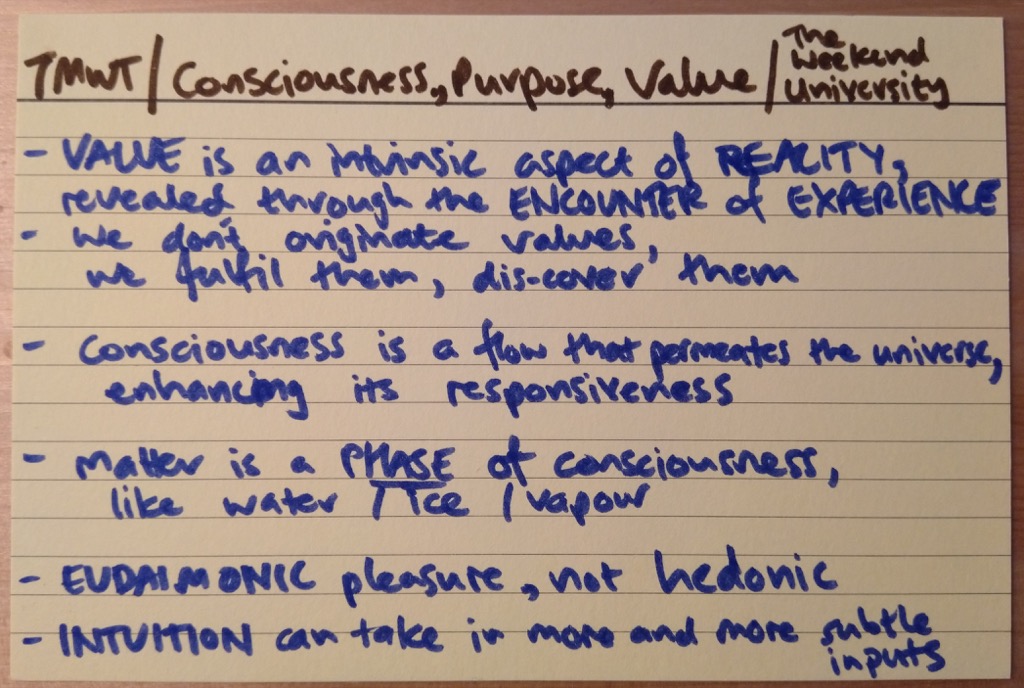 TMWT / Consciousness, Purpose, Value / The Weekend University
- VALUE is an intrinsic aspect of REALITY,
revealed through the ENCOUNTER of EXPERIENCE
- we don't originate values,
we fulfil them, dis-cover them
- consciousness is a flow that permeates the universe,
enhancing its responsiveness
- matter is a PHASE of consciousness,
like water / ice / vapour
- EUDAIMONIC pleasure, not hedonic
- INTUITION can take in more and more subtle
inputs